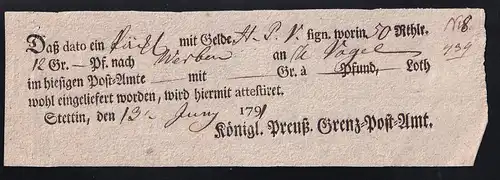 Daß dato ein Päckl mit Gelde H. P. V. sign. worin 50 Rthlr. No 8.
12 Gr. — Pf. nach Werben an Vogel 439
im hiesigen Post-Amte — mit — Gr. à — Pfund, — Loth
wohl eingeliefert worden, wird hiermit attestiret.
Stettin, den 13 Juny 1791
Königl. Preuß. Grenz-Post-Amt.